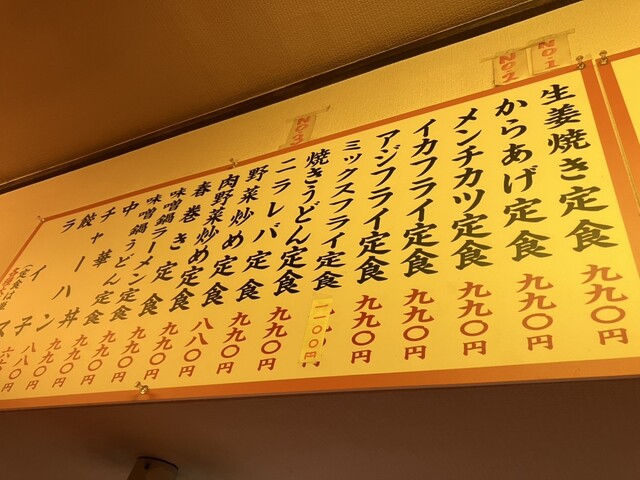 NO.1
NO.2
NO.3
生姜焼き定食 九九〇円
からあげ定食 九九〇円
メンチカツ定食 九九〇円
イカフライ定食 九九〇円
アジフライ定食 九九〇円
ミックスフライ定食
焼きうどん定食 九九〇円
ニラレバ定食 九九〇円
野菜炒め定食 八八〇円
肉野菜炒め定食 九九〇円
春巻き定食 九九〇円
味噌鍋ラーメン定食 九九〇円
味噌鍋うどん定食 九九〇円
中華丼
チャーハン
餃子
ライス
(定食は